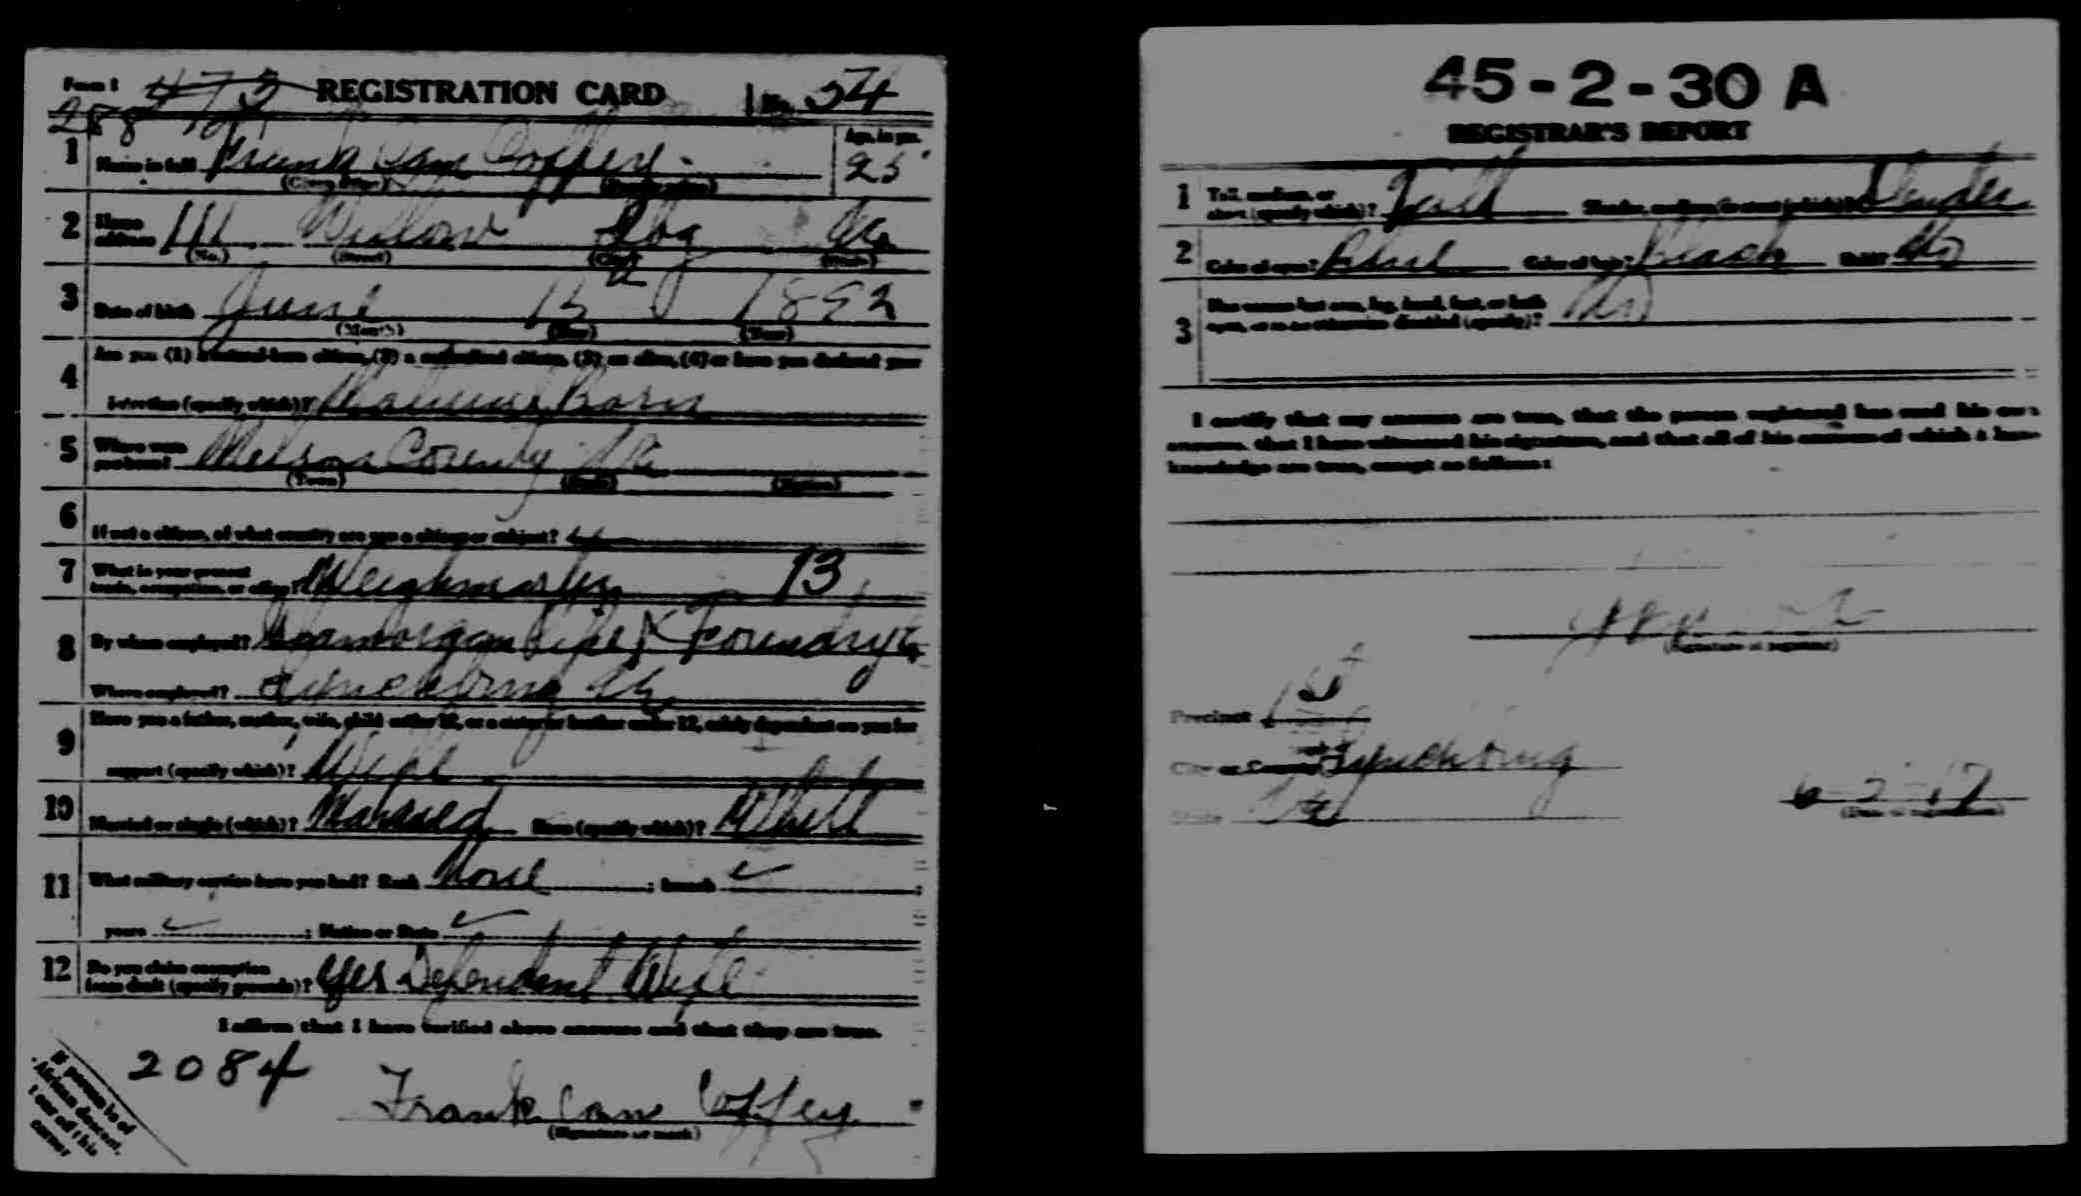 Form 1 473 REGISTRATION CARD No. 54
288
1 Name in full Frank Cam Coffey Age, in yrs. 25
(Given name) (Family name)
2 Home address 111 Willow Lbg Va
(No.) (Street) (City) (State)
3 Date of birth June 15 1892
(Month) (Day) (Year)
4 Are you (1) a natural-born citizen, (2) a naturalized citizen, (3) an alien, (4) or have you declared your
intention (specify which)? Natural Born
5 Where were you born? Nelson County Va
(Town) (State) (Nation)
6 If not a citizen, of what country are you a citizen or subject?
7 What is your present trade, occupation, or office? Weighmaster 13
8 By whom employed? Glamorgan Pipe & Foundry Co
Where employed? Lynchburg Va
9 Have you a father, mother, wife, child under 12, or a sister or brother under 12, solely dependent on you for
support (specify which)? Wife
10 Married or single (which)? Married Race (specify which)? White
11 What military service have you had? Rank None ; branch
years ; Nation or State
12 Do you claim exemption from draft (specify grounds)? Yes Dependent Wife
I affirm that I have verified above answers and that they are true.
2084
Frank Cam Coffey
(Signature or mark)
If person is of
African descent,
corner.
45-2-30 A
REGISTRAR'S REPORT
1 Tall, medium, or short (specify which)? Tall Slender, medium, or stout (which)? Slender
2 Color of eyes? Blue Color of hair? Black Bald? No
3 Has person lost arm, leg, hand, foot, or both eyes, or is he otherwise disabled (specify)? No
I certify that my answers are true, that the person registered has read his own
answers, that I have witnessed his signature, and that all of his answers of which I have
knowledge are true, except as follows:
(Signature of registrar)
Precinct 1st
City or County Lynchburg
State Va
(Date of registration)